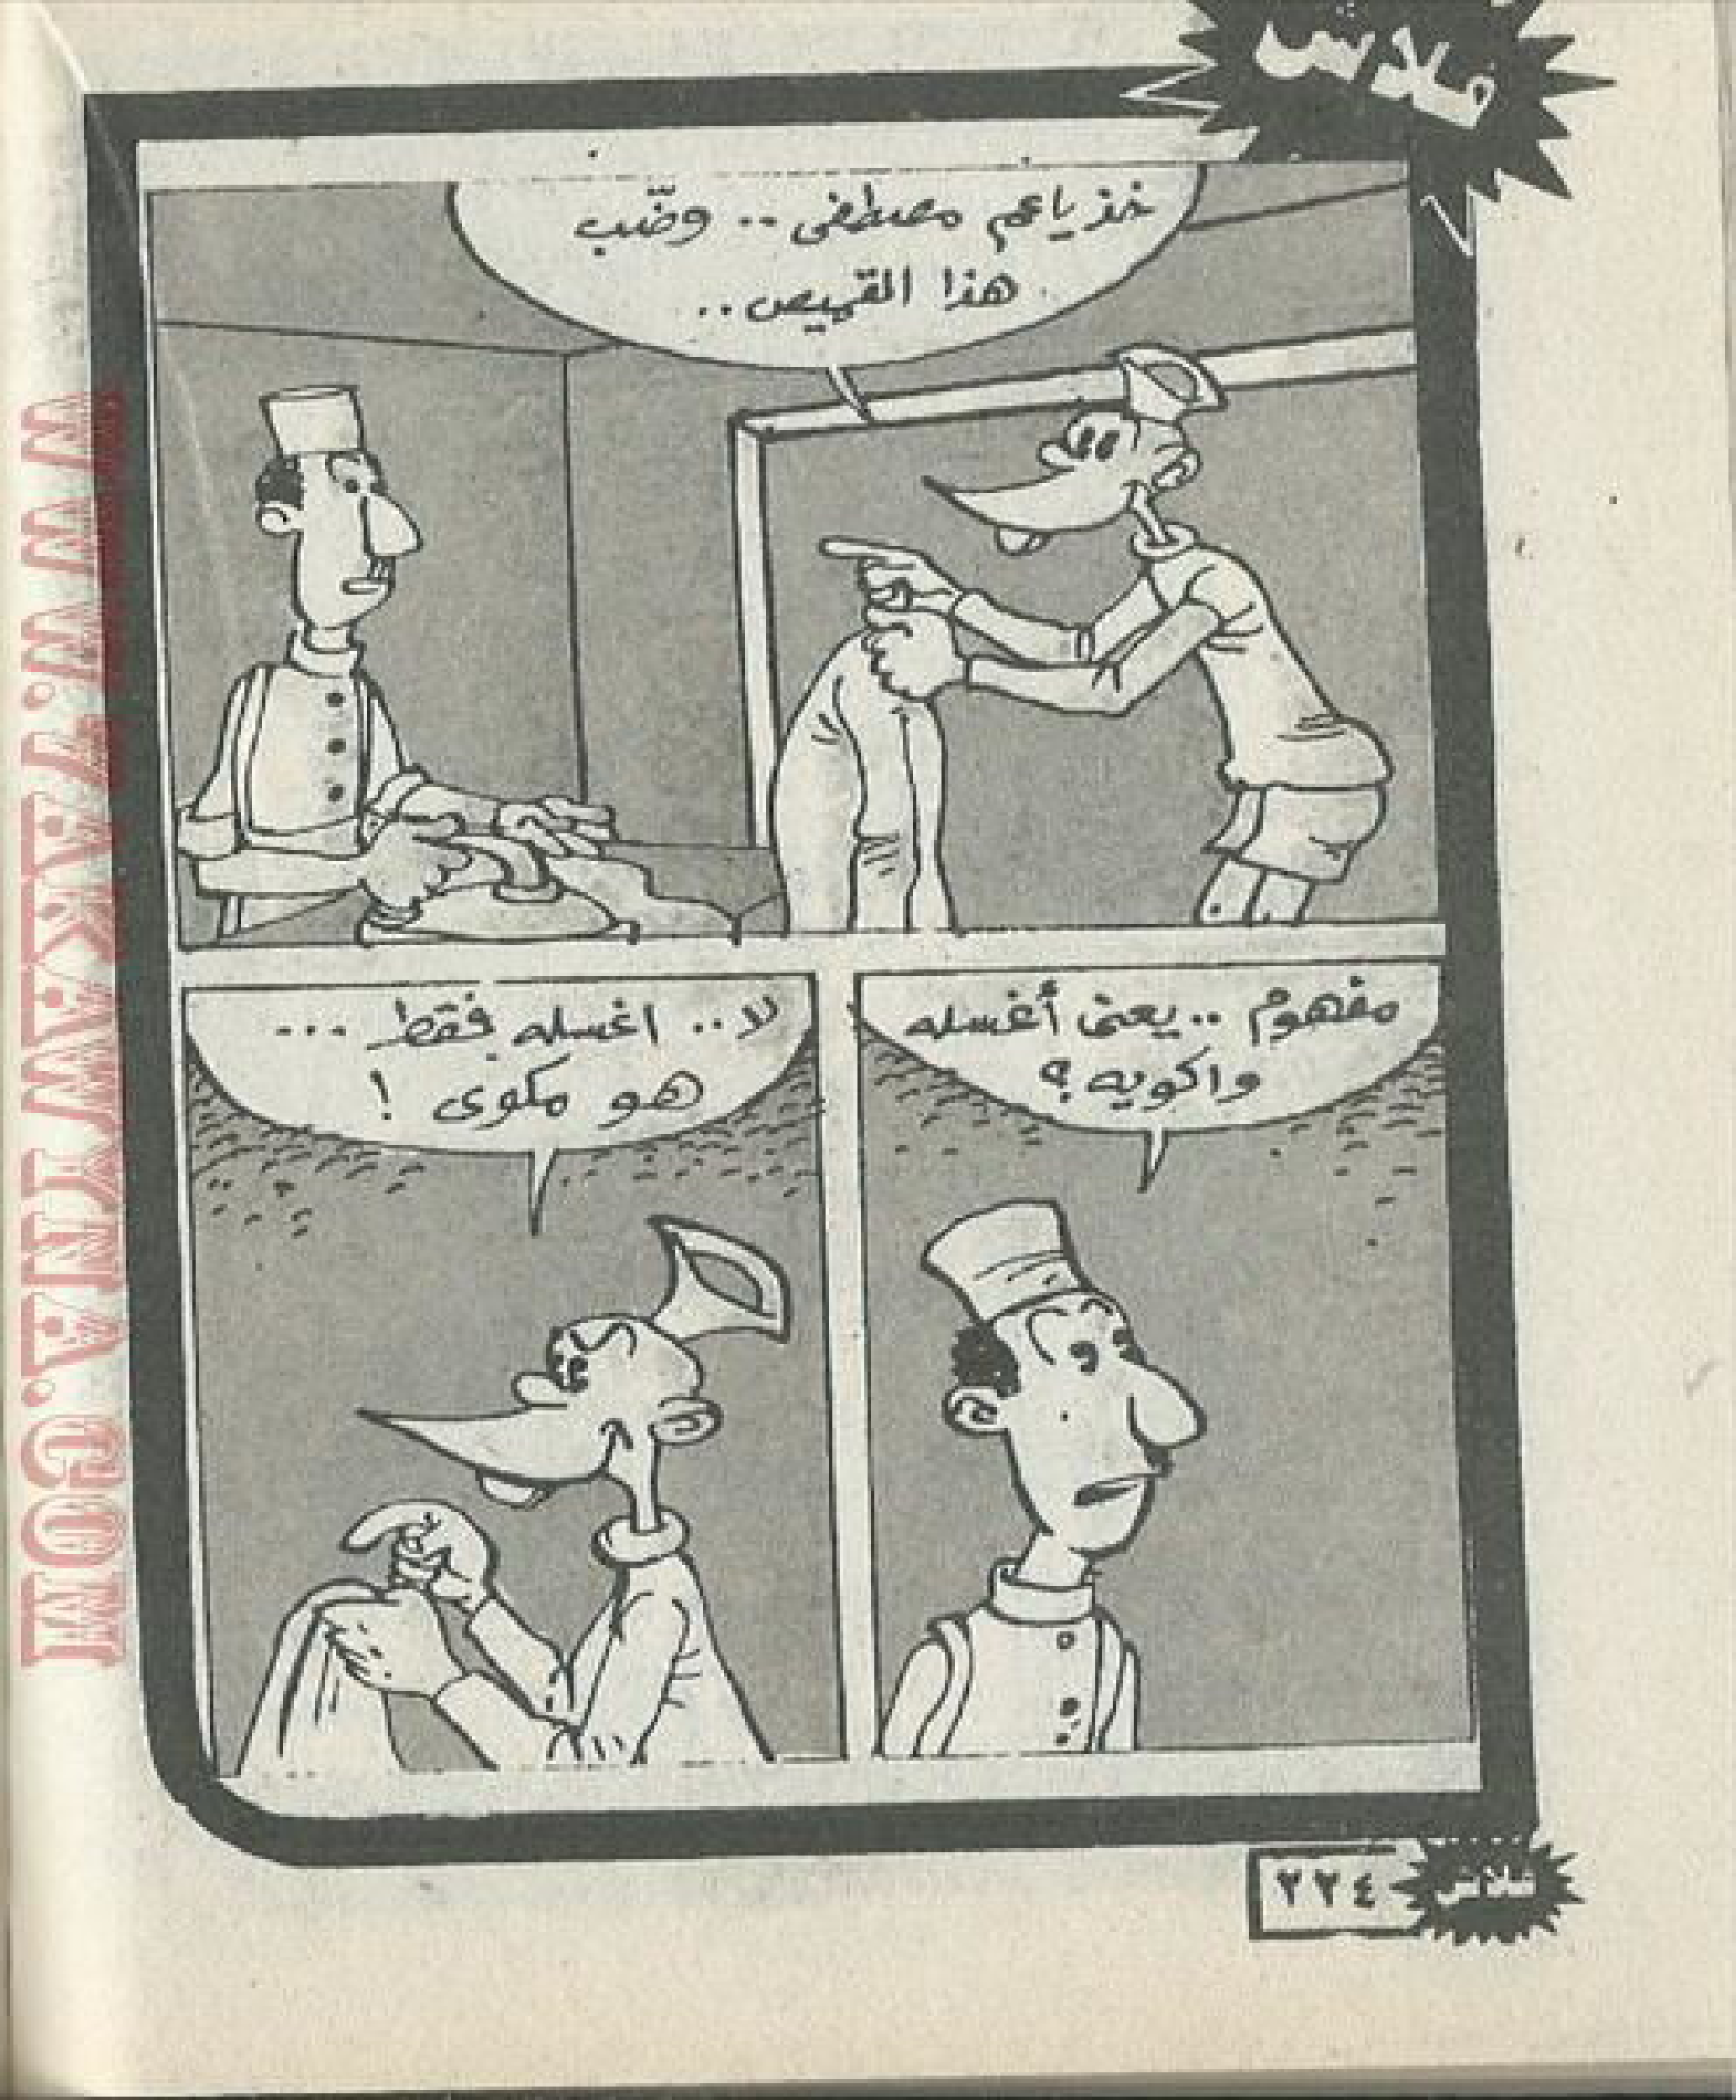 فلاش
خذ ياعم مصطفى .. وضّب
هذا القميص ..
مفهوم .. يعنى أغسله
واكويه ؟
لا .. اغسله فقط ...
هو مكوى !
فلاش
٢٢٤
WWW.VAKAWTNA.COM